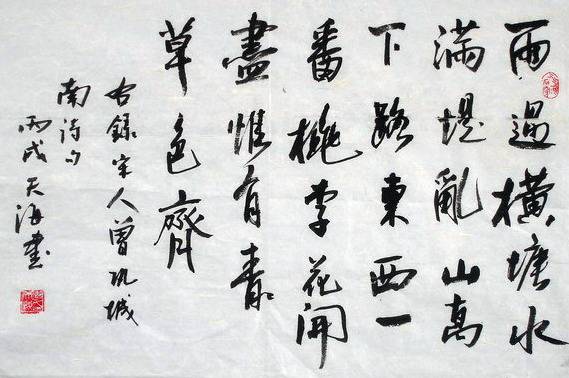 雨過橫塘水
滿堤亂山高
下路東西一
番桃李花開
盡惟有青
草色齊
右録宋人曾巩城
南诗句
丙戌天海書